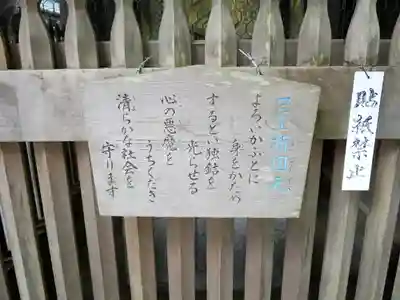 よろいかぶとに
身をかため
するどい独鈷を
光らせる
心の悪魔を
うちくだき
清らかな社会を
守ります
貼紙禁止